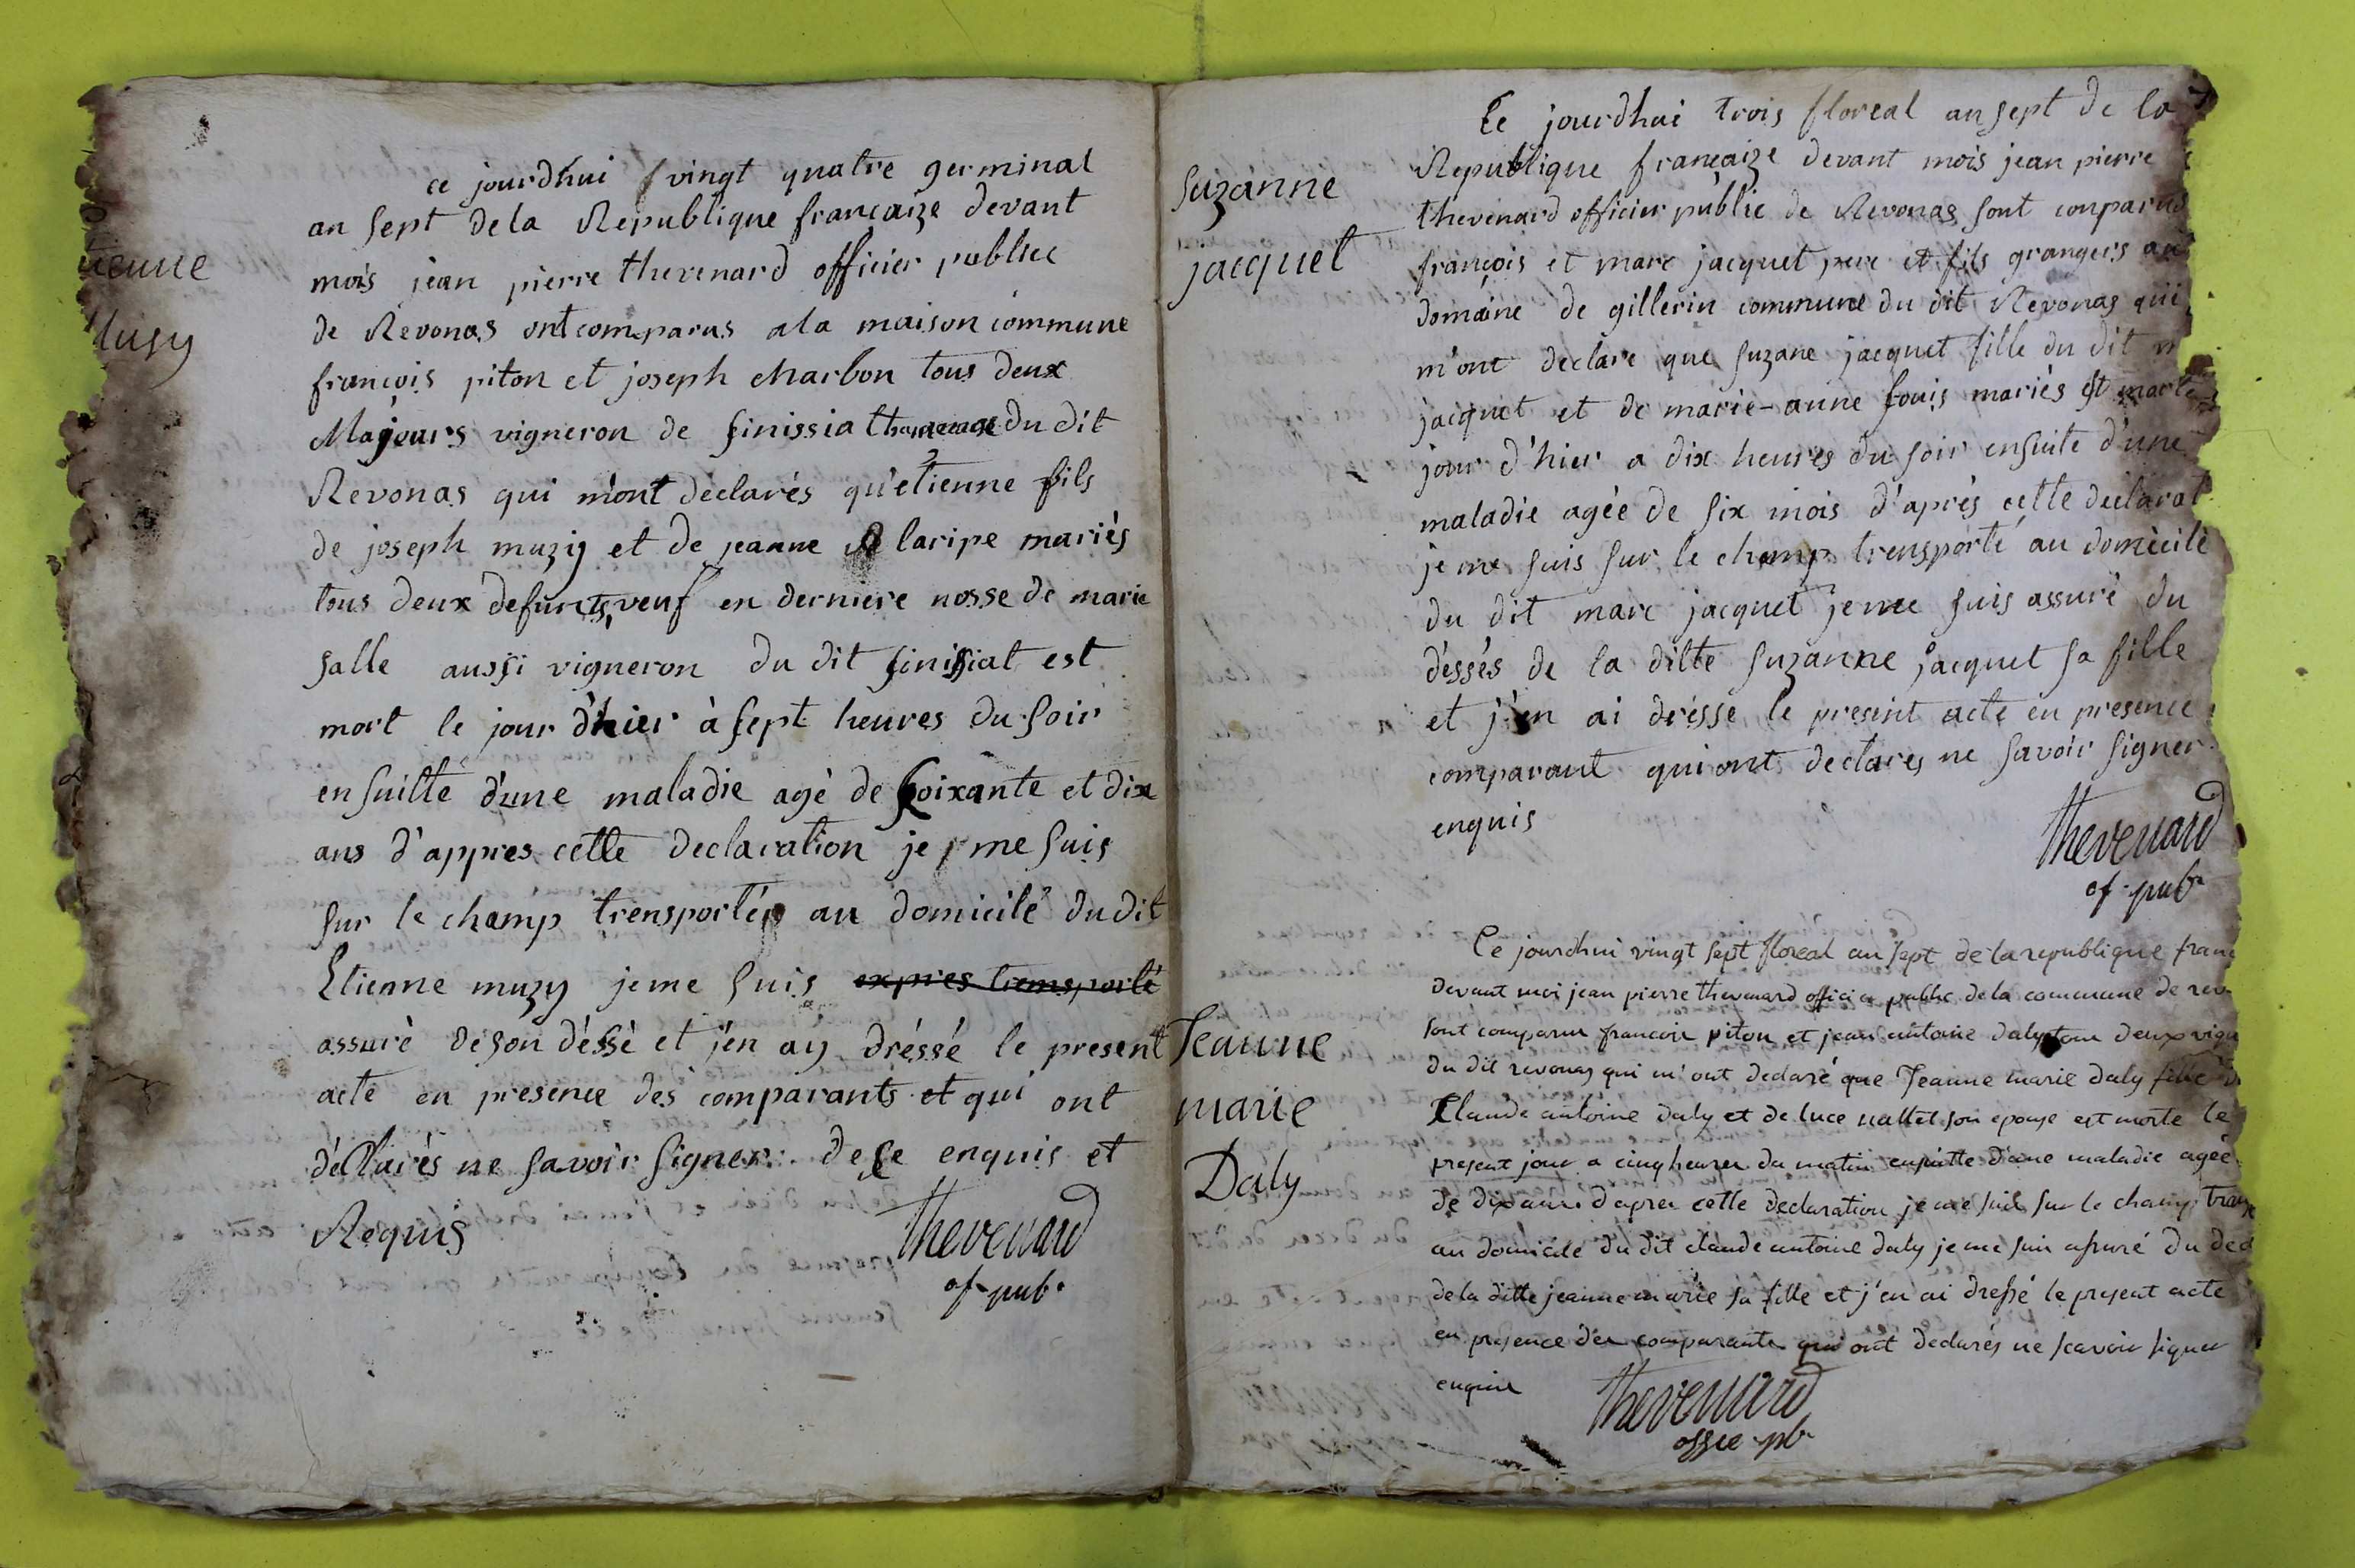 tienne
Musy
ce jourdhui vingt quatre germinal
an sept dela Republique francaize devant
mois jean pierre thevenard officier publiec
de Revonas ont comparus ala maison commune
françois piton et joseph charbon tous deux
Majeurs vigneron de finissia du dit
Revonas qui m'ont déclarés qu'etienne fils
de joseph muzy et de jeanne laripe mariés
tous deux defunts, veuf en derniere nosse de marie
salle aussi vigneron du dit finissiat est
mort le jour d'hier à sept heures du soir
ensuitte d'une maladie agé de soixante et dix
ans d'appres cette declaration je me suis
sur le champ trensportés au domicilé du dit
Etienne muzy jeme suis expres trensporté
assuré deson déssè et j'én ay dréssé le present
acte en presence des comparants et qui ont
décllarés ne savoir signer. dece enquis et
Requis
thevenard
of-pub.
suzanne
jacquet
Ce jourdhui trois floreal an sept de la
Republique françaize devant mois jean pierre
thevenard officier públic de Revonas sont conparus
françois et marc jacquet pere et fils grangers au
domaine de gillerin commune du dit Revonas qui
m'ont declare que suzane jacquet fille du dit m
jacquet et de marie-anne fouis mariés est morte
jour d'hier a dix heures du soir ensuite d'une
maladie agée de six mois d'aprés cette declarat
je me suis sur le champ trensporté au domicile
du dit marc jacquet jeme suis assuré du
déssés de la ditte suzanne jacquet sa fille
et j'én ai drésse le present acte en presence
comparant qui ont declares ne savoir signer
enquis
thevenard
of-pub.
Jeanne
marie
Daly
Ce jourdhui vingt sept floreal an sept de la republique franc
devant moi jean pierre thevenard officier public dela commune de rev
sont comparus francois piton et jean antoine daly tous deux vign
du dit revonas qui m'ont declaré que Jeanne marie daly fille d
Claude antoine daly et de luce nallet son epouse est morte le
present jour a cinq heures du matin ensuitte d'une maladie agée
de dix ans. d'apres cette declaration je me suis sur le champ transp
au domicile du dit claude antoine daly je me suis assuré du dec
dela ditte jeanne marie sa fille et j'en ai dressé le present acte
en presence des comparants qui ont declarés ne scavoir signer
enquis
thevenard
offic-pb.